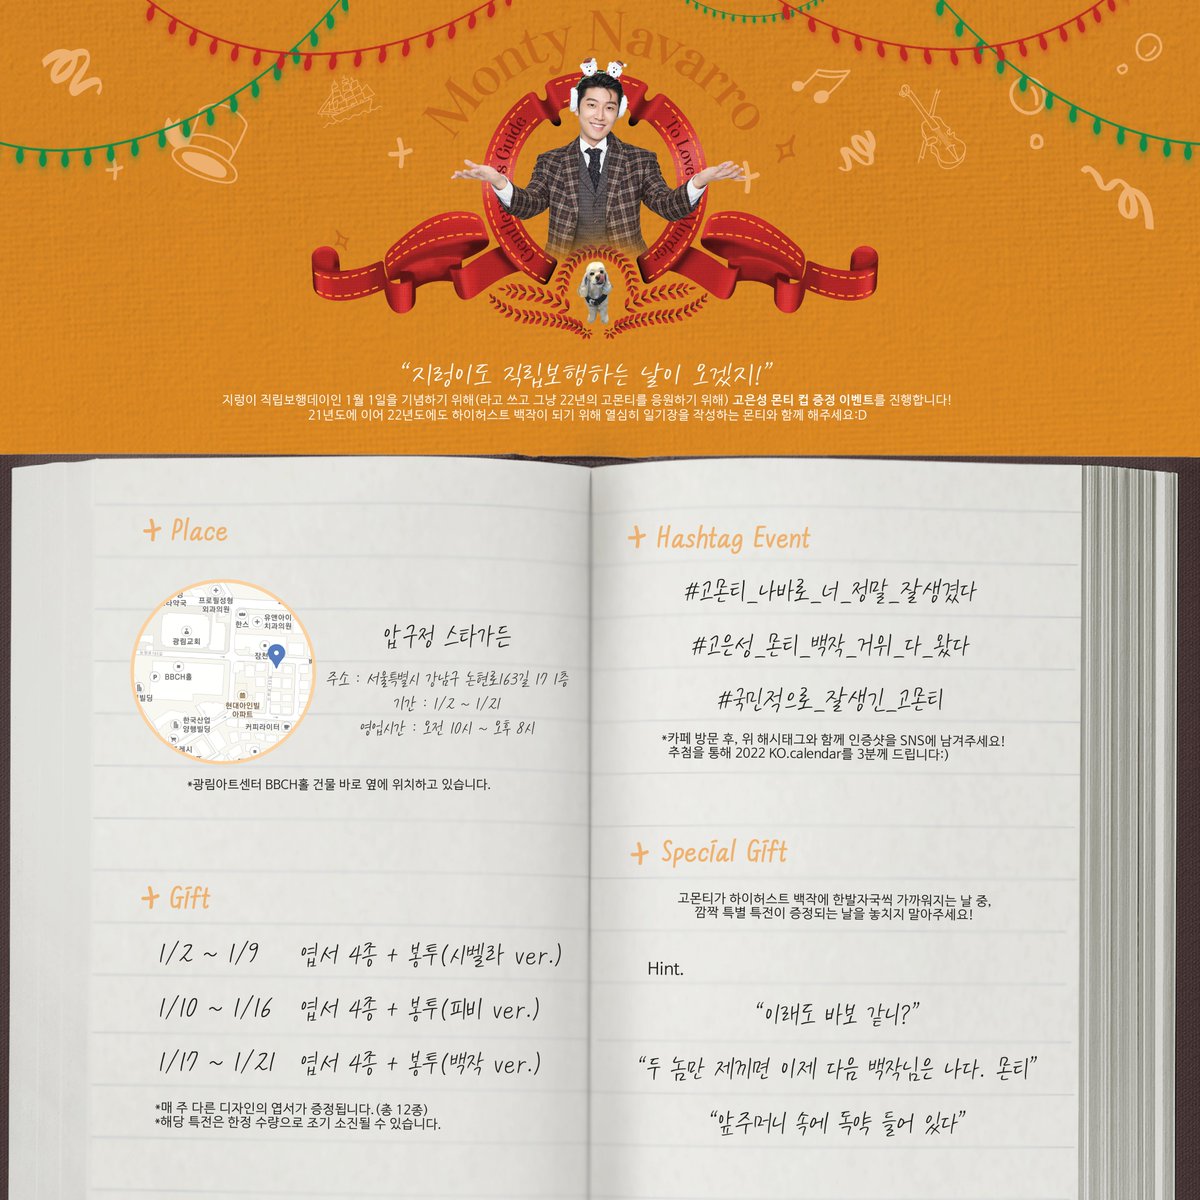 Monty Navarro
s Guide
To Love
Gentlem
Murder
“지렁이도 직립보행하는 날이 오겠지!”
지렁이 직립보행데이인 1월 1일을 기념하기 위해(라고 쓰고 그냥 22년의 고몬티를 응원하기 위해) 고은성 몬티 컵 증정 이벤트를 진행합니다!
21년도에 이어 22년도에도 하이허스트 백작이 되기 위해 열심히 일기장을 작성하는 몬티와 함께 해주세요:D
+ Place
프로필성형
외과의원
라약국
한스
유앤아이
치과의원
광림교회
잠천
P
BBCH홀
빌딩
현대아인빌
아파트
한국산업
양행빌딩
커피라이터
압구정 스타가든
주소 : 서울특별시 강남구 논현로163길 17 1층
기간 : 1/2 ~ 1/21
영업시간 : 오전 10시 ~ 오후 8시
*광림아트센터 BBCH홀 건물 바로 옆에 위치하고 있습니다.
+ Gift
1/2 ~ 1/9 엽서 4종 + 봉투(시벨라 ver.)
1/10 ~ 1/16 엽서 4종 + 봉투(피비 ver.)
1/17 ~ 1/21 엽서 4종 + 봉투(백작 ver.)
*매 주 다른 디자인의 엽서가 증정됩니다.(총 12종)
*해당 특전은 한정 수량으로 조기 소진될 수 있습니다.
+ Hashtag Event
#고몬티_나바로_너_정말_잘생겼다
#고은성_몬티_백작_거위_다_왔다
#국민적으로_잘생긴_고몬티
*카페 방문 후, 위 해시태그와 함께 인증샷을 SNS에 남겨주세요!
추첨을 통해 2022 KO.calendar를 3분께 드립니다:)
+ Special Gift
고몬티가 하이허스트 백작에 한발자국씩 가까워지는 날 중,
깜짝 특별 특전이 증정되는 날을 놓치지 말아주세요!
Hint.
“이래도 바보 같니?”
“두 놈만 제끼면 이제 다음 백작님은 나다. 몬티”
“앞주머니 속에 독약 들어 있다”